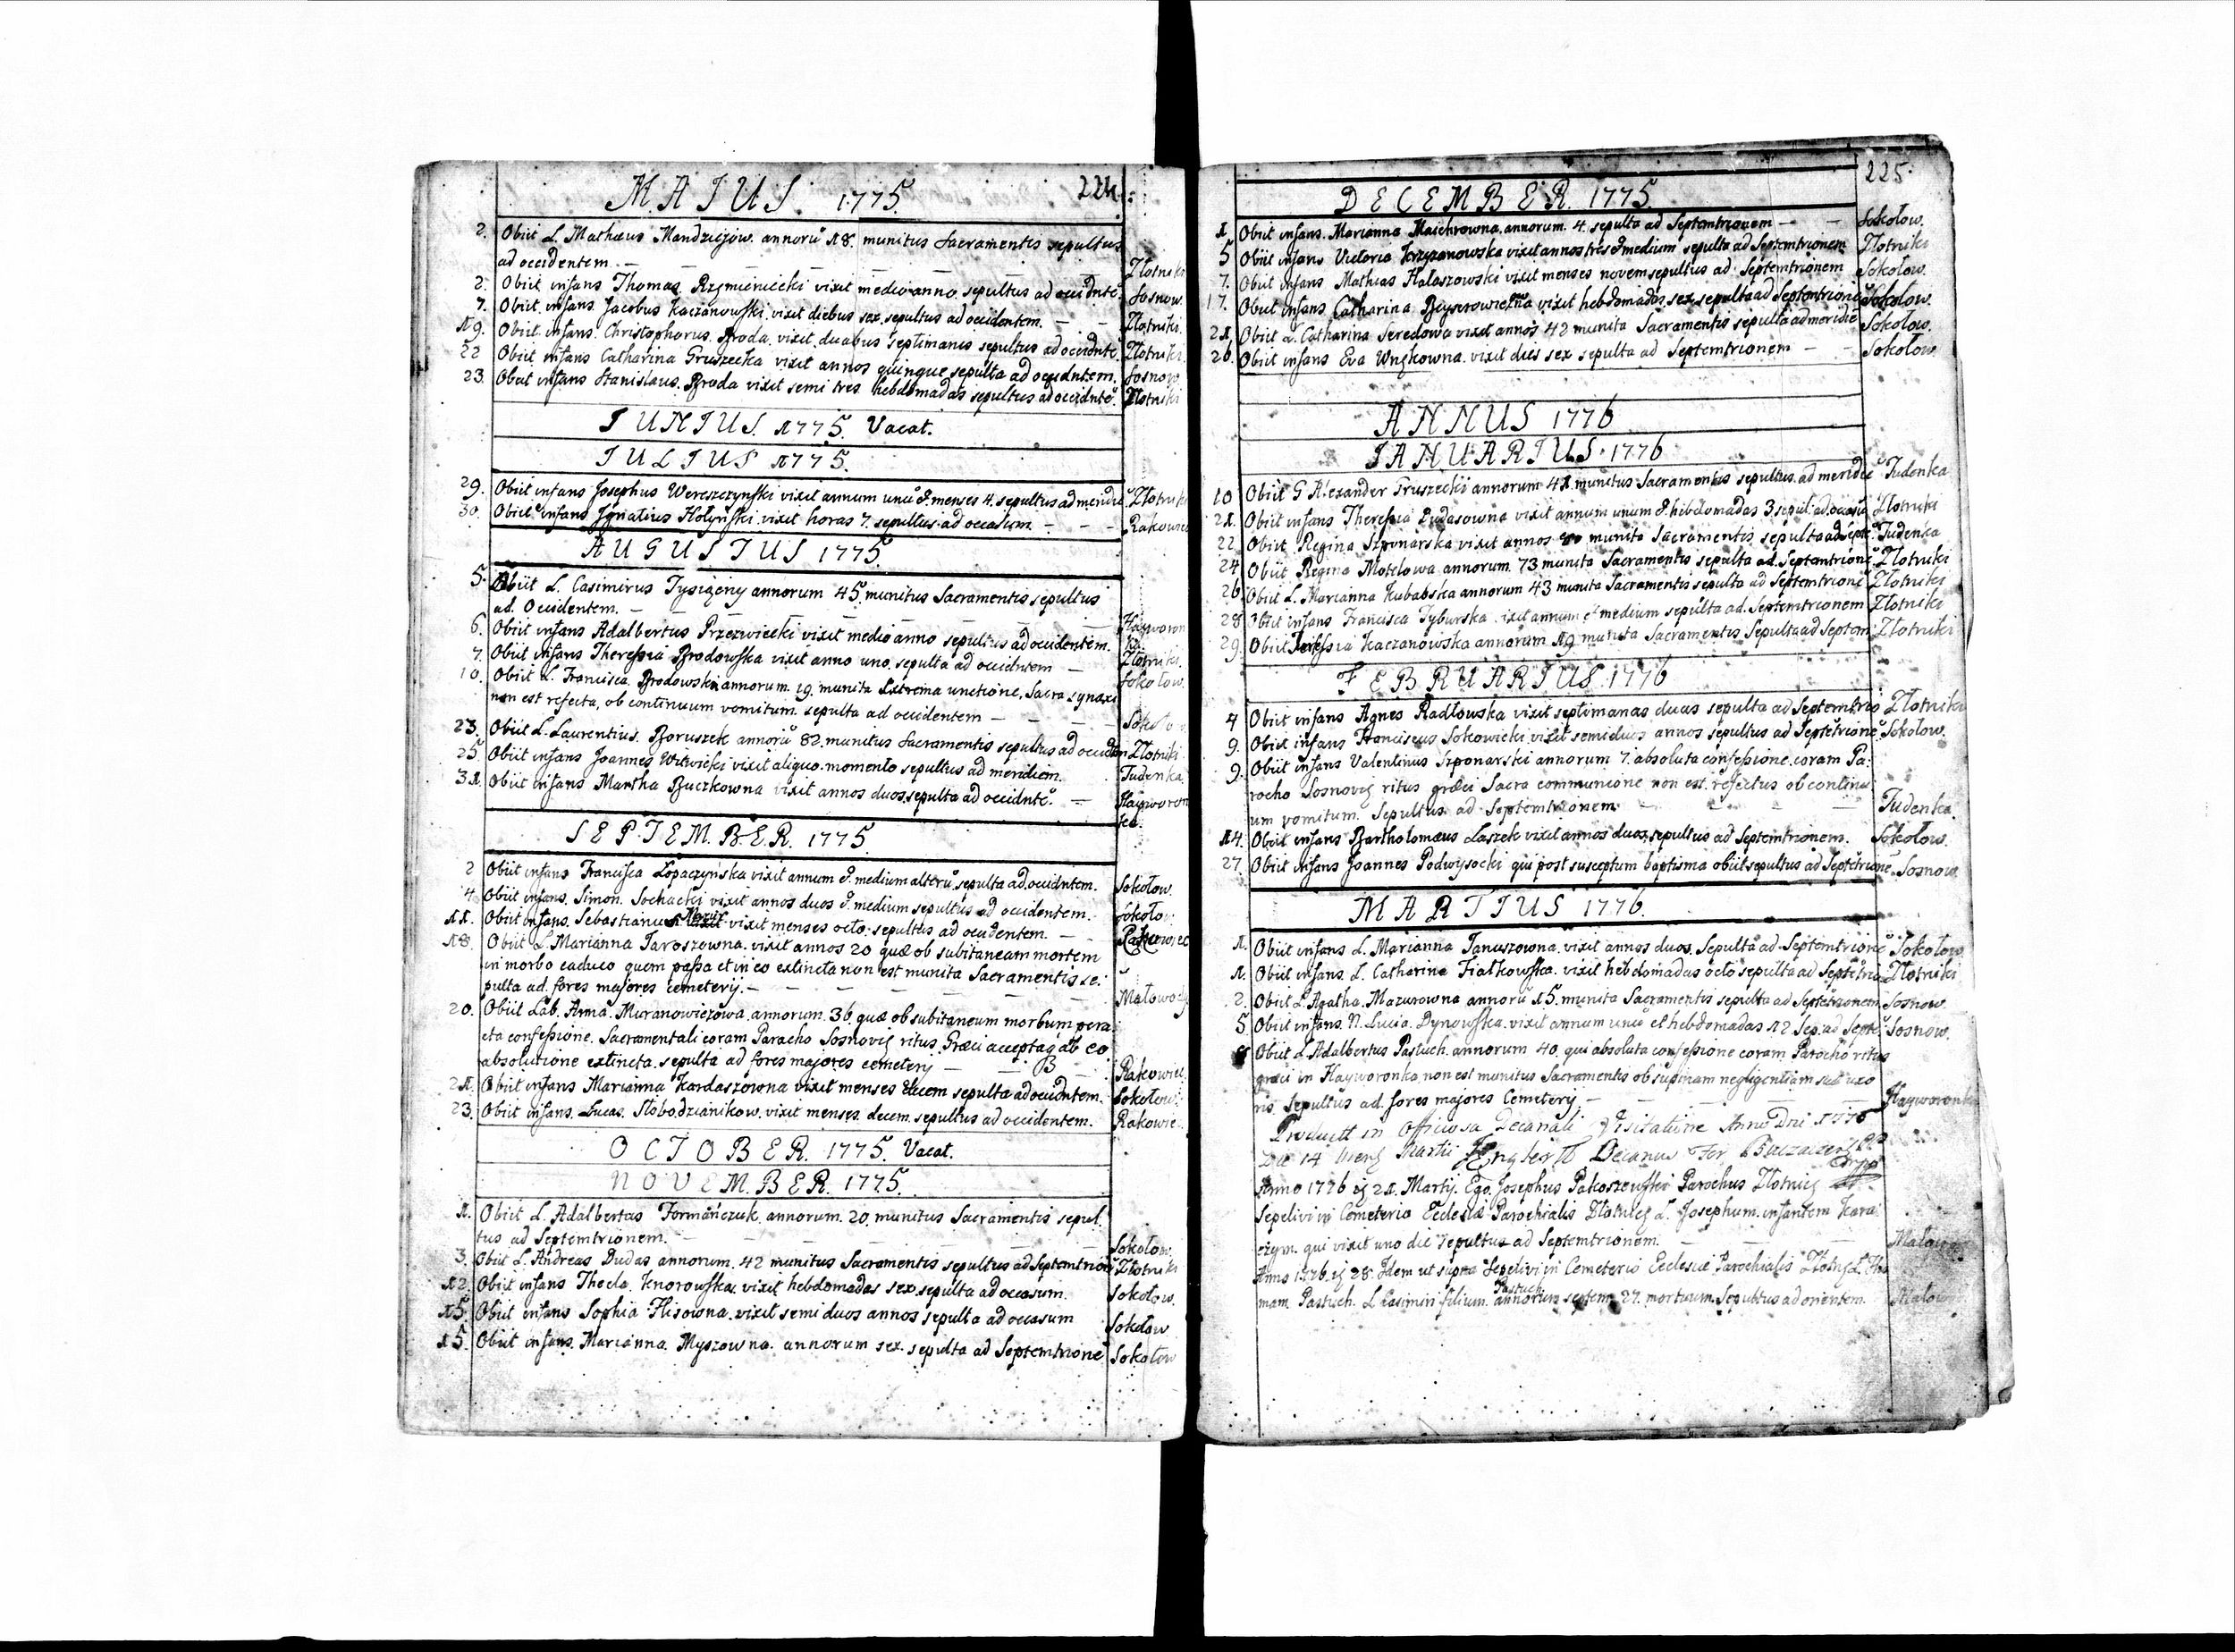 MAJUS. 1775. 224.
2. Obiit L. Mathæus Mandziejow. annorũ 18. munitus Sacramentis sepultus
ad occidentem. — Złotniki
2. Obiit infans Thomas medio anno, sepultus ad occidntẽ. Sosnow.
7. Obiit. infans. Jacobus Kaczanowski. vixit diebus sex. sepultus ad occidentem. — Złotniki.
19. Obiit. infans. Christophorus. Broda, vixit. duabus septimanis sepultus ad occidntẽ. Złotniki.
22 Obiit infans Catharina Gruszecka vixit annos quinque sepulta ad occidntem. Sosnow
23. Obiit infans Stanislaus. Broda vixit semi tres hebdomadas sepultus ad occidntẽ. Złotniki
JUNIUS. 1775. Vacat.
JULIUS 1775.
29. Obiit infans Josephus Wereszczynski vixit annum unũ & menses 4. sepultus ad meridiẽ Złotniki
30. Obiit infans Ignatius Hołyński. vixit horas 7. sepultus ad occasum. — Rakowiec
AUGUSTUS 1775.
5. Obiit L. Casimirus Tysiączny annorum 45. munitus Sacramentis sepultus
ad. Occidentem. — Hayworon
6. Obiit infans Adalbertus Przezwiecki vixit medio anno sepultus ad occidentem. ka.
7. Obiit infans Theressia Brodowska vixit anno uno. sepulta ad occidntem — Złotniki.
10. Obiit L. Francisca. Brodowska annorum. 19. munita Extrema unctione, Sacra synaxi Sokołow.
non est refecta, ob continuum vomitum. sepulta ad occidentem — Sokoło
23. Obiit L. Laurentius. Boruszek annorũ 82. munitus Sacramentis sepultus ad occidtem Złotniki
25. Obiit infans Joannes Witwicki vixit aliquo momento sepultus ad meridiem. Tudenka
31. Obiit infans Martha Buczkowna vixit annos duos. sepulta ad occidntẽ. — Hayworon
ka.
SEPTEMBER. 1775.
2 Obiit infans Francisca Łopaczynska vixit annum & medium alterũ. sepulta ad. occidntem. Sokołow.
4. Obiit infans. Simon. Sochacki vixit annos duos & medium sepultus ad occidentem. Sokoło
11. Obiit infans. Sebastianus vixit menses octo. sepultus ad occidentem. — Rakowiec
18. Obiit L. Marianna Jaroszowna. vixit annos 20 quæ ob subitaneam mortem
in morbo caduco quem passa et in eo extincta non est munita Sacramentis se:
pulta ad. fores majores cemeterij. — Małowod
20. Obiit Lab. Anna. Muranowiczowa. annorum. 36. quæ ob subitaneum morbum pera:
cta confessione. Sacramentali coram Parocho Sosnovię ritus. Græci acceptaq ab eo
absolutione extincta. sepulta ad fores majores cemeterij — Rakowiec
21. Obiit infans Marianna Kardaszowna vixit menses decem sepulta ad occidntem. Sokołow:
23. Obiit infans. Lucas. Słobodzianikow. vixit menses. decem. sepultus ad occidentem. Rakowie
OCTOBER. 1775. Vacat.
NOVEMBER. 1775.
1. Obiit L. Adalbertus Formańczuk annorum. 20. munitus Sacramentis sepul.
tus ad Septemtrionem. — Sokołow.
3. Obiit L. Andreas Dudas annorum. 42 munitus Sacramentis sepultus ad Septemtrionẽ Złotniki
12. Obiit infans Thecla. Knorowska. vixit hebdomadas sex. sepulta ad occasum. Sokołow.
15. Obiit infans Sophia Flisowna. vixit semi duos annos sepulta ad occasum Sokołow
15. Obiit infans. Marianna. Myszowna. annorum sex. sepulta ad Septemtrionẽ Sokołow
225.
DECEMBER. 1775.
1. Obiit infans. Marianna Maichrowna. annorum. 4. sepulta ad Septemtrionem — Sokołow.
5 Obiit infans Victoria Krzyzanowska vixit annos tres & medium sepulta ad Septemtrionem Złotniki
7. Obiit infans Mathias Hałaszowski vixit menses novem sepultus ad Septemtrionem Sokołow.
17. Obiit infans Catharina vixit hebdomadas sex. sepulta ad Septemtrionẽ Sokołow.
21. Obiit L. Catharina Seredowa vixit annos 42 munita Sacramentis sepulta ad meridiẽ Sokołow.
26. Obiit infans Eva Wnękowna. vixit dies sex sepulta ad Septemtrionem — Sokołow
ANNUS 1776
JANUARIUS. 1776
10 Obiit G Alexander Truszecki annorum 41. munitus Sacramentis sepultus. ad meridiẽ Tudenka
21. Obiit infans Theressia Dudasowna vixit annum unum & hebdomadas 3 sepul: ad. occasũ Złotniki
22. Obiit Regina Szponarska vixit annos 80 munita Sacramentis sepulta ad septẽ. Tudenka
24 Obiit Regina Motelowa annorum. 73 munita Sacramentis sepulta ad. Septemtrionẽ Złotniki
26 Obiit L. Marianna Kubabska annorum 43 munita Sacramentis sepulta ad Septemtrionẽ Złotniki
28 Obiit infans Francisca Tyburska vixit annum et medium sepulta ad. Septemtrionem Złotniki
29. Obiit Theressia Kaczanowska annorum 19 munita Sacramentis Sepulta ad Septem: Złotniki
FEBRUARIUS. 1776
4 Obiit infans Agnes Radłowska vixit septimanas duas sepulta ad Septemtrio Złotniki
9. Obiit infans Franciscus Sokowicki vixit semiduos annos sepultus ad Septẽtrionẽ. Sokołow.
9. Obiit infans Valentinus Szponarski annorum 7. absoluta confessione coram Pa:
rocho Sosnovię ritus græci Sacra communione non est. refectus ob continu
um vomitum. Sepultus. ad Septemtrionem. — Tudenka.
14. Obiit infans Bartholomæus Laszek vixit annos duos. sepultus ad Septemtrionem. Sokołow.
27. Obiit infans Joannes Podwysocki qui post susceptum baptisma obiit sepultus ad Septẽtrionẽ Sosnow
MARTIUS 1776.
1. Obiit infans L. Marianna Januszowna. vixit annos duos. Sepulta ad Septemtrionẽ Sokołow
1. Obiit infans. L. Catharina Fiałkowska. vixit hebdomadas octo sepulta ad Septẽtrio Złotniki
2. Obiit L. Agatha. Mazurowna annorũ 15. munita Sacramentis sepulta ad Septẽtrionem. Sosnow
5 Obiit infans. N. Lucia. Dynowska. vixit annum unũ et hebdomadas 12 Sep: ad Septẽ: Sosnow.
Obiit L Adalbertus Pastuch. annorum 40. qui absoluta confessione coram Parocho ritus
græci in Hayworonka non est munitus Sacramentis ob supinam negligentiam suæ uxo
ris. Sepultus ad. fores majores Cemeterij — Hayworonka
Producti in Officiosa Decanali Visitatione Anno Dni 1776
Die 14 Mens Martii Decanus
Anno 1776 ig 21. Martij. Ego. Josephus Pakoszewski Parochus Złotnicę
Sepelivi in Cemeterio Ecclesiæ Parochialis Złotnicę L. Josephum. infantem Kara:
czym. qui vixit uno die sepultus ad Septemtrionem. —
Anno 1776. ig 28. Idem ut supra Sepelivi in Cemeterio Ecclesiæ Parochialis Złotnę L. Tho
Pastuch
mam. Pastuch. L Casimiri filium. annorum septem 27. mortuum. Sepultus ad orientem.